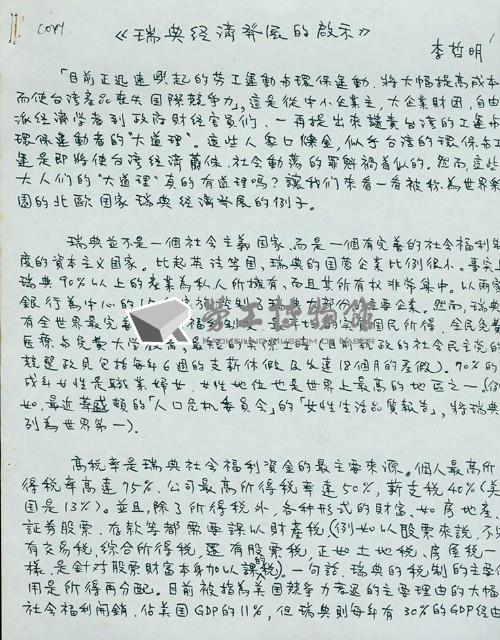 copy
《瑞典经済発展的啟示》
李哲明
「目前正迅速興起的劳工運動与環保運動,將大幅提高成本
而使台湾產品丧失国際競爭力」,這是從中小企業主,大企業財团,自由
派经済學者到政府財经官員们,一再提出來譴責台湾的工運与
環保運動者的"大道理"。這些人衆口鑠金,似乎台湾的環保与工
運是即將使台湾经済蕭條、社会動荡的罪魁禍首似的。然而,這些
大人们的"大道理"真的有道理嗎?讓我们來看一看被称為世界樂
園的北歐国家瑞典经済発展的例子。
瑞典並不是一個社会主義国家,而是一個有完善的社会福利制
度的資本主义国家。比起英法等国,瑞典的国营企業比例很小。事实上
瑞典90%以上的產業為私人所擁有,而且其所有权非常集中。以兩家
銀行為中心的 瑞典大部份的主要企業。然而,瑞典
有全世界最完善 国民所得、全民免費
医療与免費大学教育, 目前执政的社会民主党的
競選政見包括每年6個的支薪休假及长達18個月的產假)。90%的
成年女性是職業婦女,女性地位也是世界上最高的地區之一(例
如,最近華盛頓的「人口危机委員会」的「女性生活品質報告」,將瑞典
列為世界第一)。
高税率是瑞典社会福利資金的最主要來源。個人最高所
得税率高達75%,公司最高所得税率達50%,薪支税40%(美
国是13%)。並且,除了所得税外,各种形式的財富,如房地產、
証券股票、存款等都需要課以財產税(例如以股票來說,不只
有交易税,綜合所得税,还有股票税,正如土地税、房屋税一
樣,是針对股票財富本身加以課税的)。一句話,瑞典的税制的主要作
用是所得再分配。目前被指為美国競爭力衰落的主要理由的大幅
社会福利開銷,佔美国GDP的11%,但瑞典則每年有30%的GDP经由
勞工博物館
KAOHSIUNG MUSEUM OF LABOR